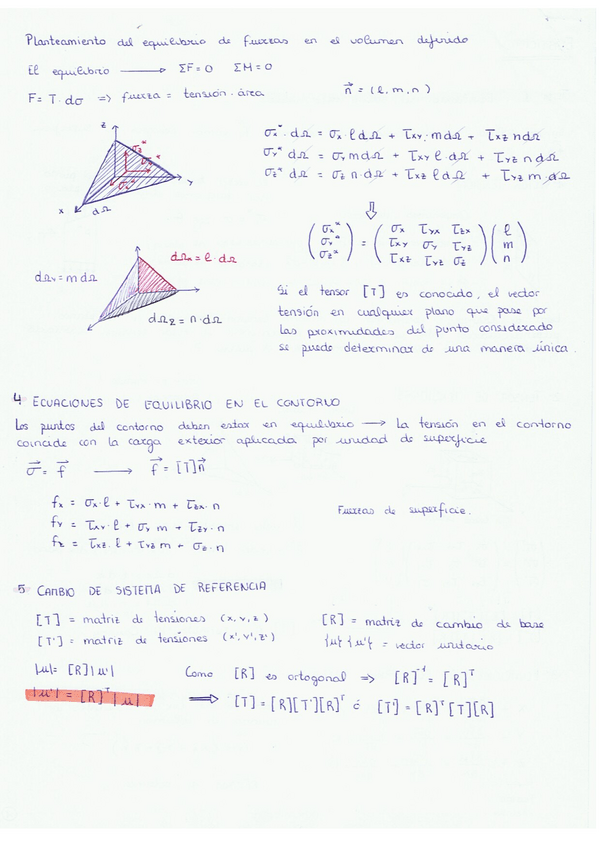 Planteamiento del equilibrio de fuerzas en el volumen definido
El equilibrio ⟶ ΣF=0 ΣM=0
F= T·dσ => fuerza = tensión·área n⃗ = (l, m, n)
z
σz*
σx*
σy*
x
y
dΩ
σx*·dΩ = σx·l dΩ + τxy·m dΩ + τxz n dΩ
σy* dΩ = σy m dΩ + τxy l·dΩ + τyz n dΩ
σz* dΩ = σz n·dΩ + τxz l dΩ + τyz m·dΩ
⇩
(σx* σy* σz*) = (σx τyx τzx
τxy σy τyz
τxz τyz σz) (l m n)
dΩx = l·dΩ
dΩy = m dΩ
dΩz = n·dΩ
Si el tensor [T] es conocido, el vector
tensión en cualquier plano que pase por
las proximidades del punto considerado
se puede determinar de una manera única.
4 ECUACIONES DE EQUILIBRIO EN EL CONTORNO
Los puntos del contorno deben estar en equilibrio ⟶ La tensión en el contorno
coincide con la carga exterior aplicada por unidad de superficie
σ⃗ = f⃗ ⟶ f⃗ = [T]n⃗
fx = σx·l + τyx·m + τzx·n
fy = τxy·l + σy m + τzy·n
fz = τxz·l + τyz m + σz·n
Fuerzas de superficie.
5 CAMBIO DE SISTEMA DE REFERENCIA
[T] = matriz de tensiones (x, y, z) [R] = matriz de cambio de base
[T'] = matriz de tensiones (x', y', z') {u} {u'} = vector unitario
|u| = [R]|u'| Como [R] es ortogonal => [R]⁻¹ = [R]ᵀ
|u'| = [R]ᵀ|u| ⟹ [T] = [R][T'][R]ᵀ ó [T'] = [R]ᵀ[T][R]